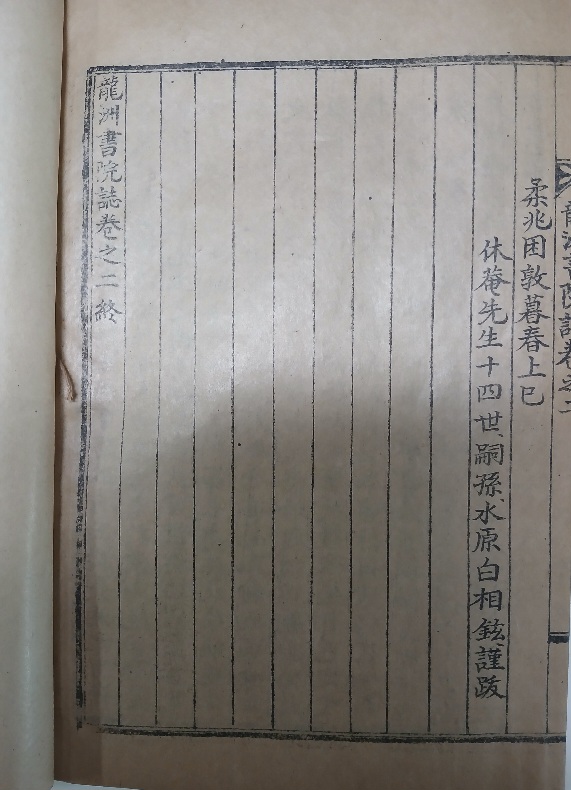 龍洲書院誌卷之二
柔兆困敦暮春上巳
休菴先生十四世嗣孫水原白相鉉謹跋
龍洲書院誌卷之二終